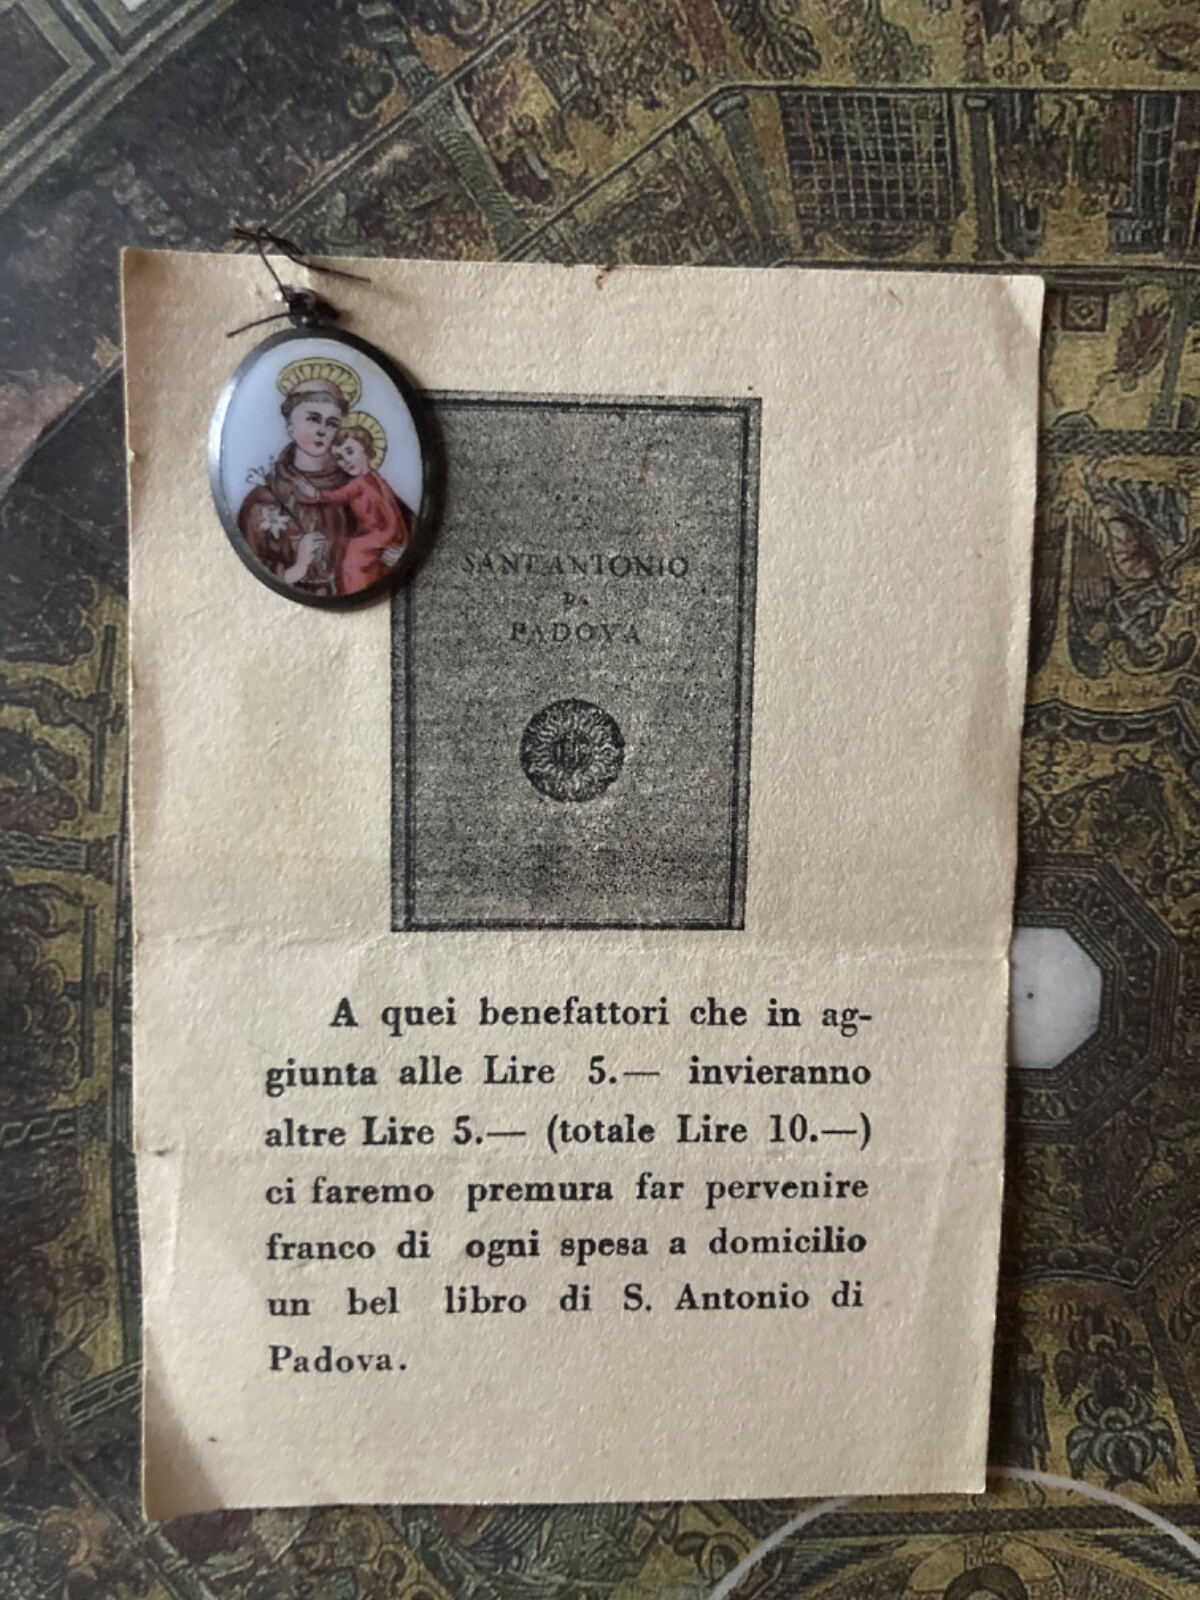 SANT'ANTONIO
DA
PADOVA
A quei benefattori che in ag-
giunta alle Lire 5.— invieranno
altre Lire 5.— (totale Lire 10.—)
ci faremo premura far pervenire
franco di ogni spesa a domicilio
un bel libro di S. Antonio di
Padova.